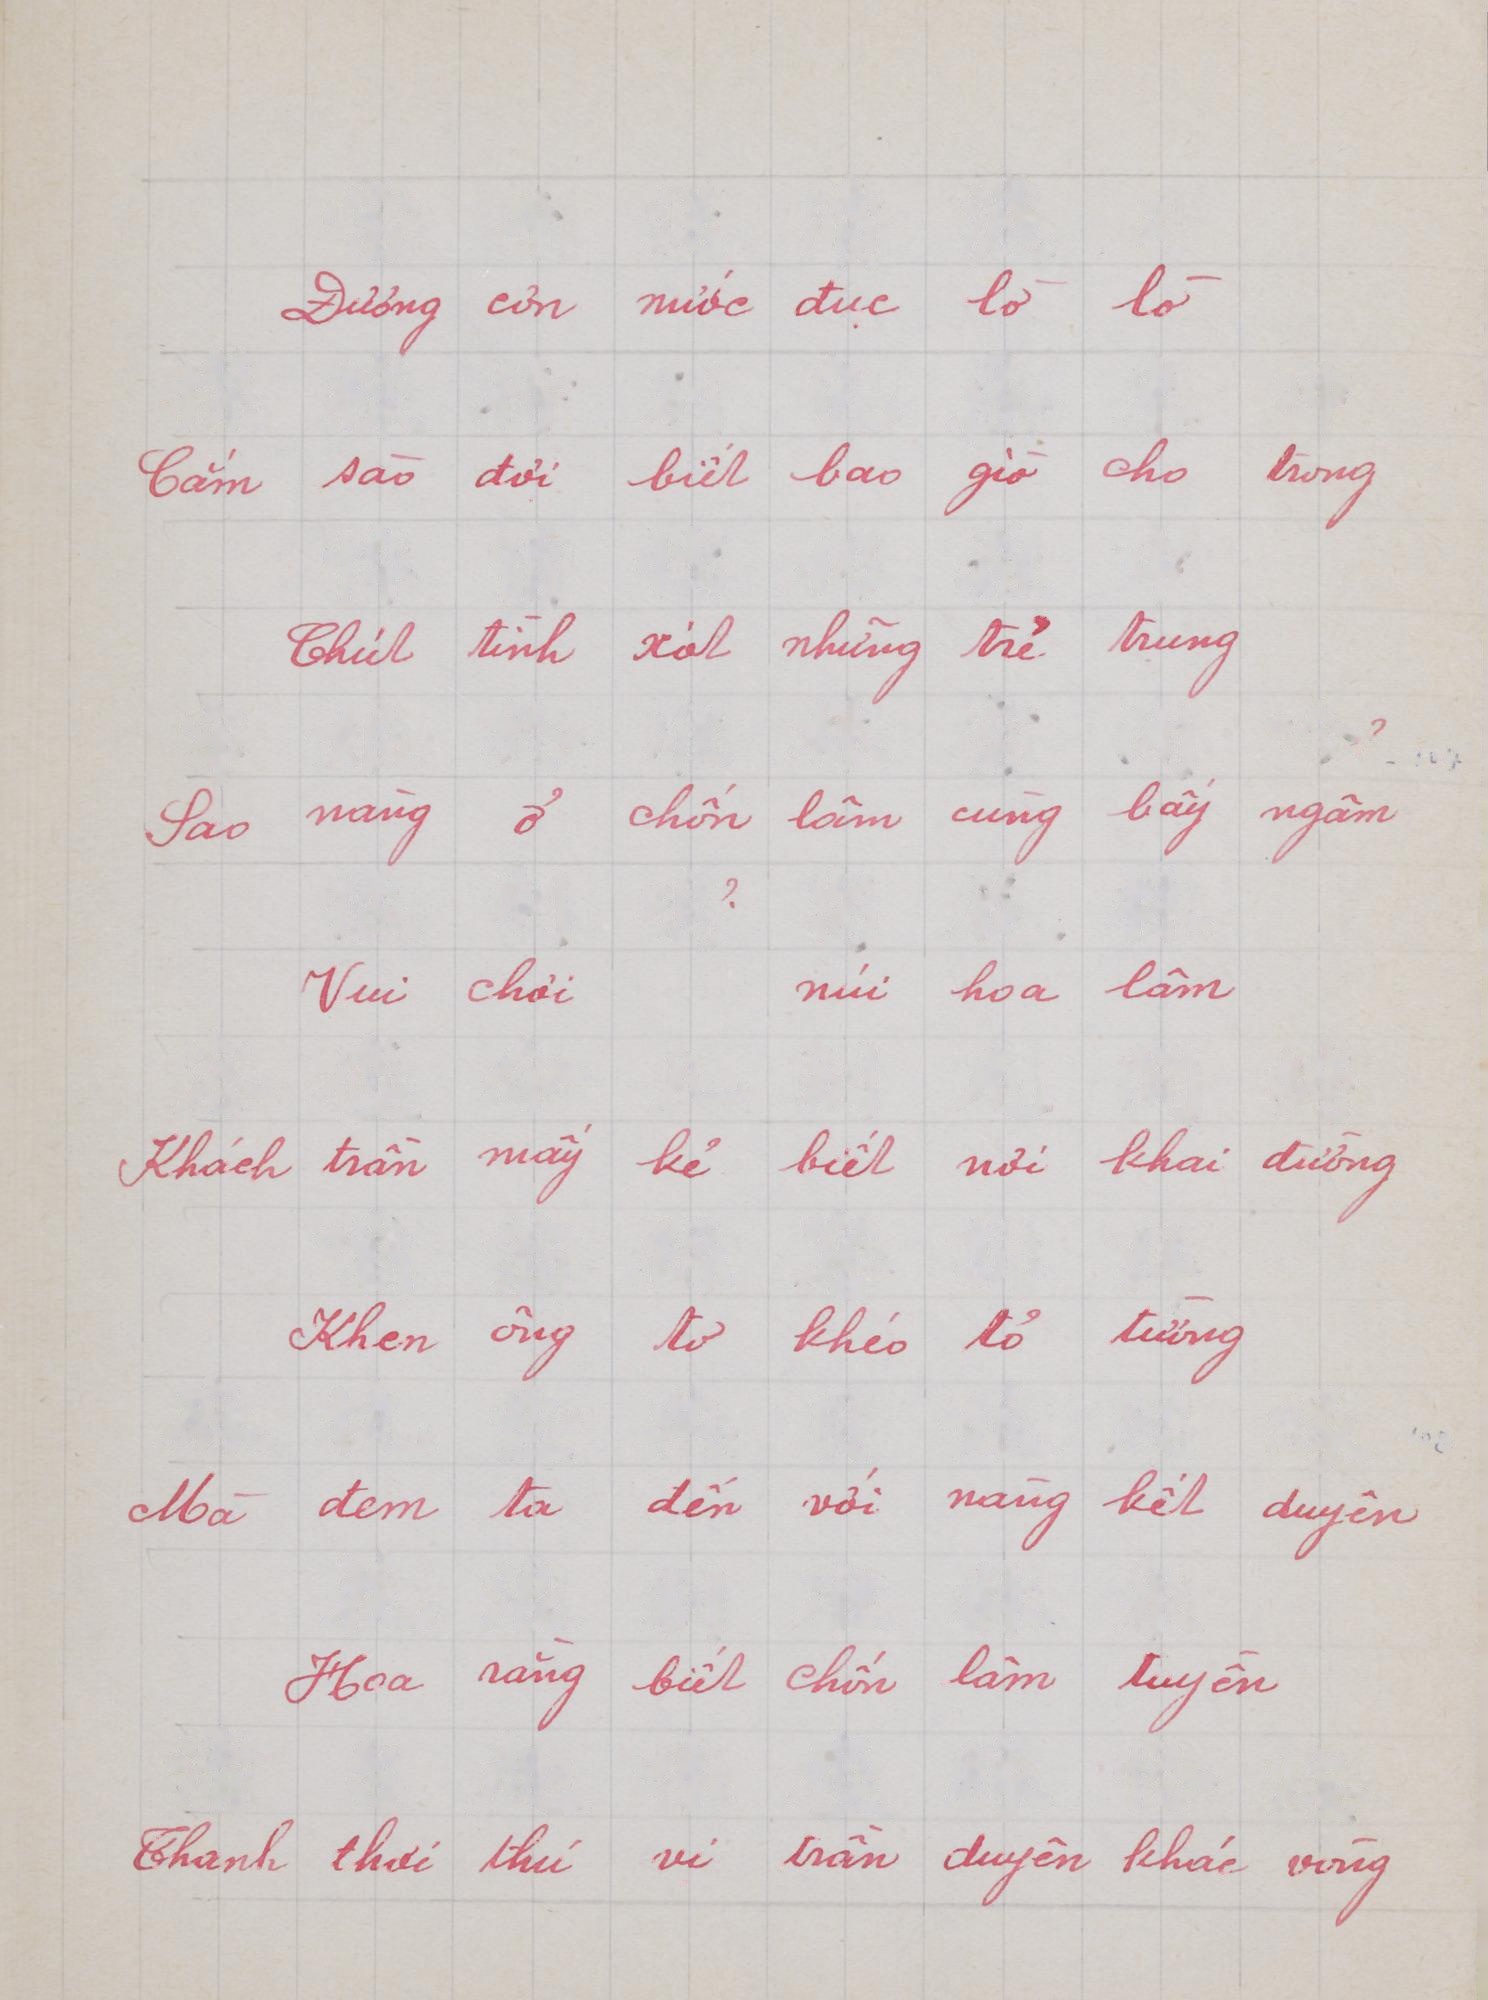 Đương cơn nước đục lờ lờ
Cắm sào đợi biết bao giờ cho trong
Chút tình xót những trẻ trung
?
Sao nàng ở chốn lâm cùng bấy ngâm
?
Vui chơi núi hoa lâm
Khách trần mấy kẻ biết nơi khai đường
Khen ông tơ khéo tỏ tường
Mà đem ta đến với nàng kết duyên
Hoa rằng biết chốn lâm tuyền
Thanh thơi thú vi trần duyên khác vòng